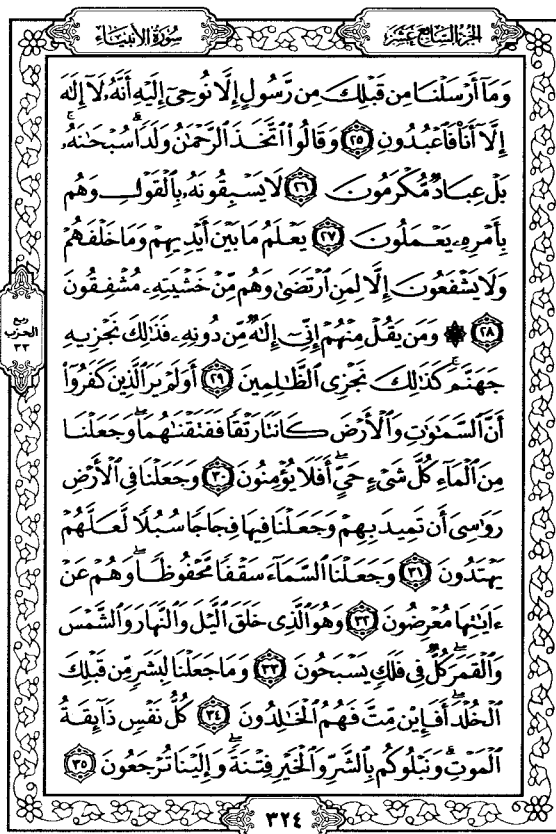 الجزء السابع عشر
سورة الأنبياء
وَمَآ أَرْسَلْنَا مِن قَبْلِكَ مِن رَّسُولٍ إِلَّا نُوحِىٓ إِلَيْهِ أَنَّهُۥ لَآ إِلَٰهَ
إِلَّآ أَنَا۠ فَٱعْبُدُونِ ﴿٢٥﴾ وَقَالُوا۟ ٱتَّخَذَ ٱلرَّحْمَٰنُ وَلَدًا ۗ سُبْحَٰنَهُۥ ۚ
بَلْ عِبَادٌ مُّكْرَمُونَ ﴿٢٦﴾ لَا يَسْبِقُونَهُۥ بِٱلْقَوْلِ وَهُم
بِأَمْرِهِۦ يَعْمَلُونَ ﴿٢٧﴾ يَعْلَمُ مَا بَيْنَ أَيْدِيهِمْ وَمَا خَلْفَهُمْ
وَلَا يَشْفَعُونَ إِلَّا لِمَنِ ٱرْتَضَىٰ وَهُم مِّنْ خَشْيَتِهِۦ مُشْفِقُونَ
﴿٢٨﴾ ۞ وَمَن يَقُلْ مِنْهُمْ إِنِّىٓ إِلَٰهٌ مِّن دُونِهِۦ فَذَٰلِكَ نَجْزِيهِ
جَهَنَّمَ ۚ كَذَٰلِكَ نَجْزِى ٱلظَّٰلِمِينَ ﴿٢٩﴾ أَوَلَمْ يَرَ ٱلَّذِينَ كَفَرُوٓا۟
أَنَّ ٱلسَّمَٰوَٰتِ وَٱلْأَرْضَ كَانَتَا رَتْقًا فَفَتَقْنَٰهُمَا ۖ وَجَعَلْنَا
مِنَ ٱلْمَآءِ كُلَّ شَىْءٍ حَىٍّ ۖ أَفَلَا يُؤْمِنُونَ ﴿٣٠﴾ وَجَعَلْنَا فِى ٱلْأَرْضِ
رَوَٰسِىَ أَن تَمِيدَ بِهِمْ وَجَعَلْنَا فِيهَا فِجَاجًا سُبُلًا لَّعَلَّهُمْ
يَهْتَدُونَ ﴿٣١﴾ وَجَعَلْنَا ٱلسَّمَآءَ سَقْفًا مَّحْفُوظًا ۖ وَهُمْ عَنْ
ءَايَٰتِهَا مُعْرِضُونَ ﴿٣٢﴾ وَهُوَ ٱلَّذِى خَلَقَ ٱلَّيْلَ وَٱلنَّهَارَ وَٱلشَّمْسَ
وَٱلْقَمَرَ ۖ كُلٌّ فِى فَلَكٍ يَسْبَحُونَ ﴿٣٣﴾ وَمَا جَعَلْنَا لِبَشَرٍ مِّن قَبْلِكَ
ٱلْخُلْدَ ۖ أَفَإِي۟ن مِّتَّ فَهُمُ ٱلْخَٰلِدُونَ ﴿٣٤﴾ كُلُّ نَفْسٍ ذَآئِقَةُ
ٱلْمَوْتِ ۗ وَنَبْلُوكُم بِٱلشَّرِّ وَٱلْخَيْرِ فِتْنَةً ۖ وَإِلَيْنَا تُرْجَعُونَ ﴿٣٥﴾
ربع
الحزب
٣٣
٣٢٤